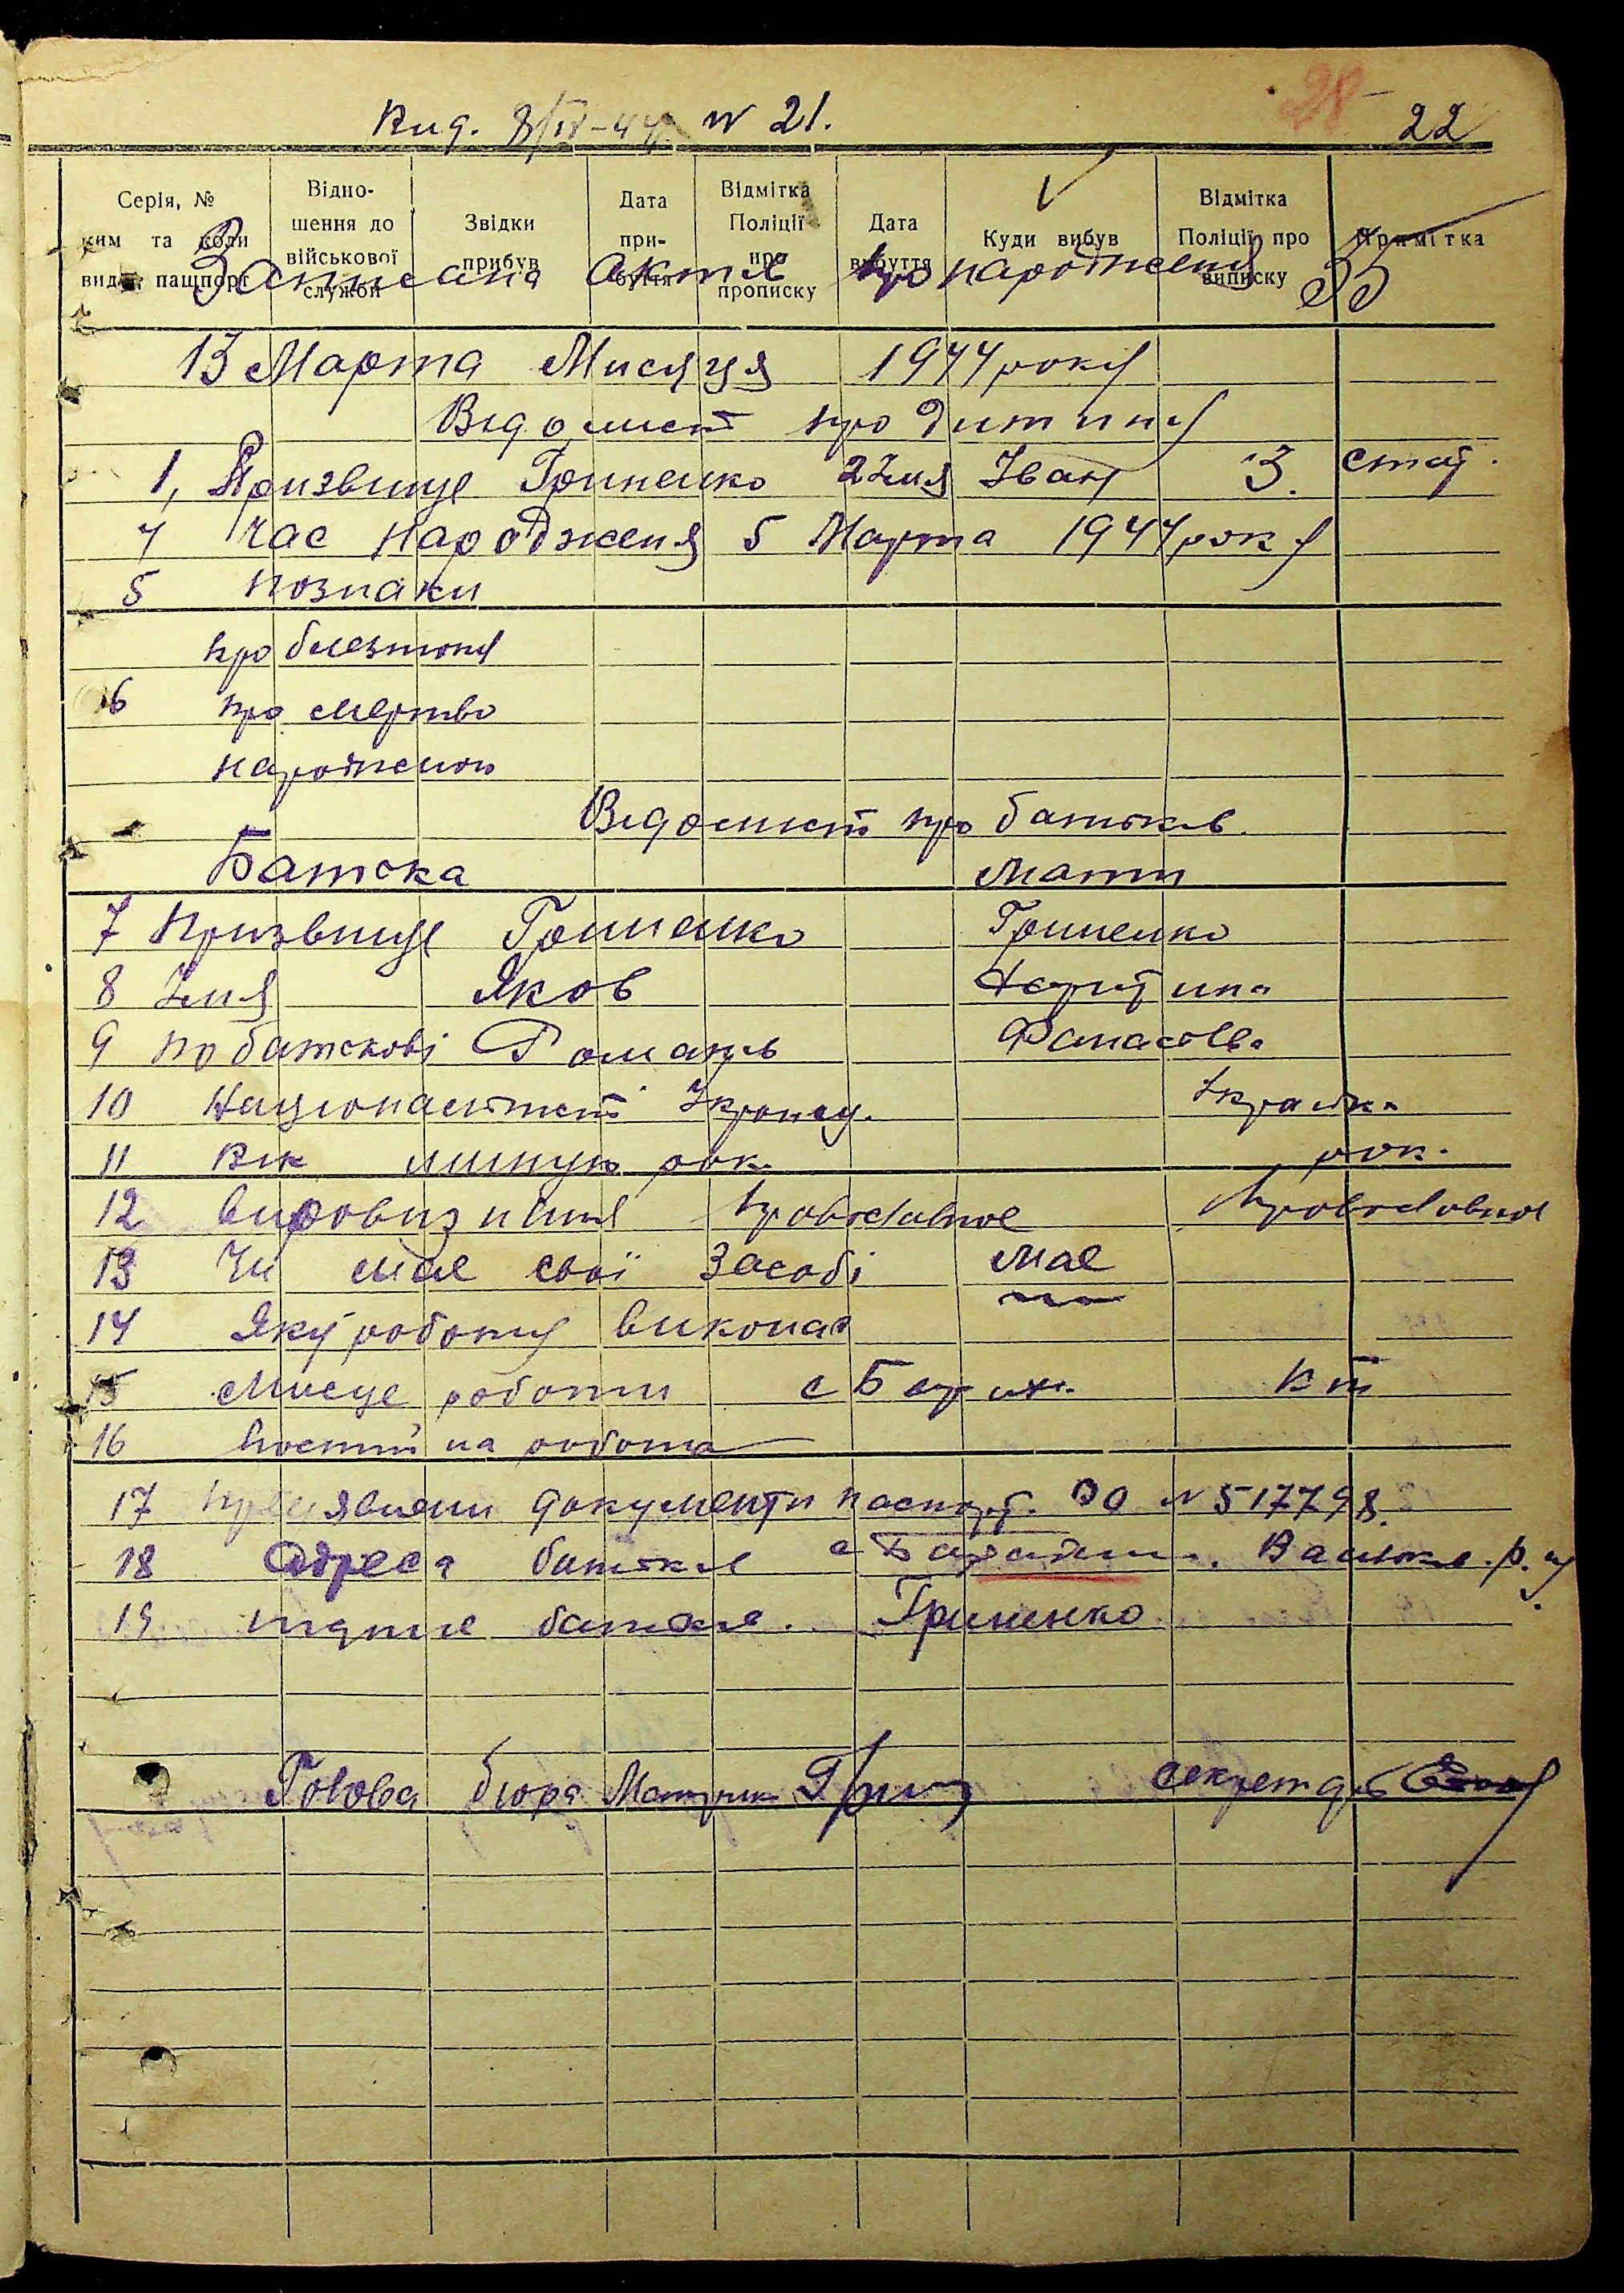 Вид. 8/IV-44 N 21.
28
22
Серія, № ким та коли видан пашпорт
Відно-шення до військової служби
Звідки прибув
Дата при-буття
Відмітка Поліції про прописку
Дата вибуття
Куди вибув
Відмітка Поліції про виписку
Примітка
Записана актів про народженя 35
13 Марта Мисяця 1944 року
Відомист про дитину
1, Призвище Гриненко 2 Імя Іван 3. стат.
4 Час народженя 5 Марта 1944 року
5 Познаки
про близнюкі
6 про мертво
народженою
Відомист про батьків.
Батька Мати
7 Призвище Гриненко Гриненко
8 Імя Яков
9 по батькові Романів Фанасовв.
10 Национальтист Украинц. Украинк.
11 Вік минуло рок. рок.
12 Вировизнаня православное православное
13 Чи має свої Засобі має
14 Яку роботу виконає
15 Мисце роботи с
16 Постит на роботі
17 Предявлени документи паспорт. ВО N 517798.
18 Адреса батьків с Васильків. р. у
19 підпис батьків. Гриненко
Голова бюра Матрик секретарь